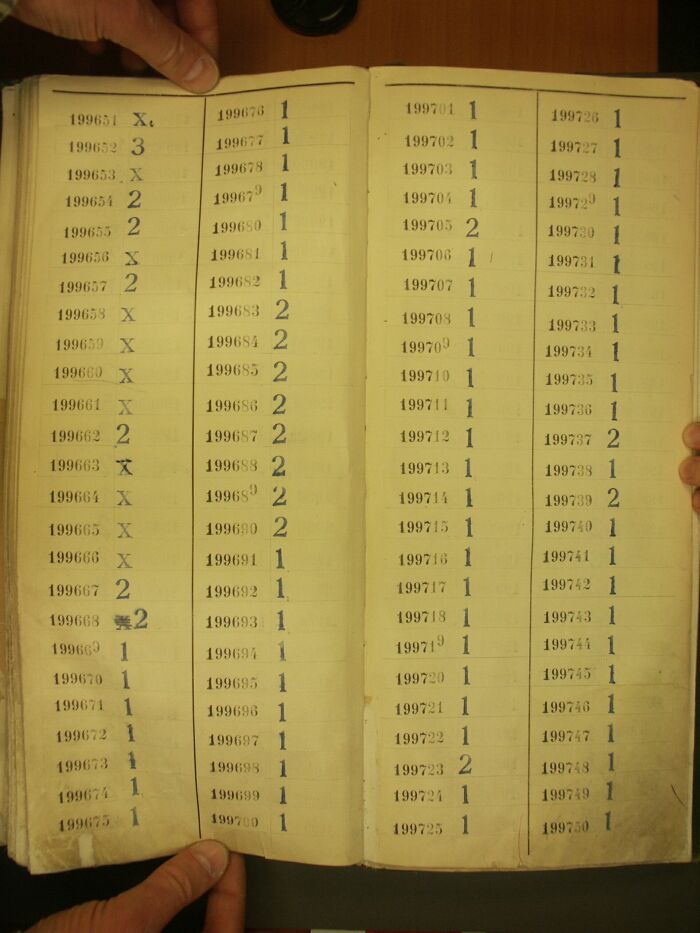 199651 X.
199652 3
199653 X
199654 2
199655 2
199656 X
199657 2
199658 X
199659 X
199660 X
199661 X
199662 2
199663 X
199664 X
199665 X
199666 X
199667 2
199668 2
199669 1
199670 1
199671 1
199672 1
199673 1
199674 1
199675 1
199676 1
199677 1
199678 1
199679 1
199680 1
199681 1
199682 1
199683 2
199684 2
199685 2
199686 2
199687 2
199688 2
199689 2
199690 2
199691 1
199692 1
199693 1
199694 1
199695 1
199696 1
199697 1
199698 1
199699 1
199700 1
199701 1
199702 1
199703 1
199704 1
199705 2
199706 1
199707 1
199708 1
199709 1
199710 1
199711 1
199712 1
199713 1
199714 1
199715 1
199716 1
199717 1
199718 1
199719 1
199720 1
199721 1
199722 1
199723 2
199724 1
199725 1
199726 1
199727 1
199728 1
199729 1
199730 1
199731 1
199732 1
199733 1
199734 1
199735 1
199736 1
199737 2
199738 1
199739 2
199740 1
199741 1
199742 1
199743 1
199744 1
199745 1
199746 1
199747 1
199748 1
199749 1
199750 1